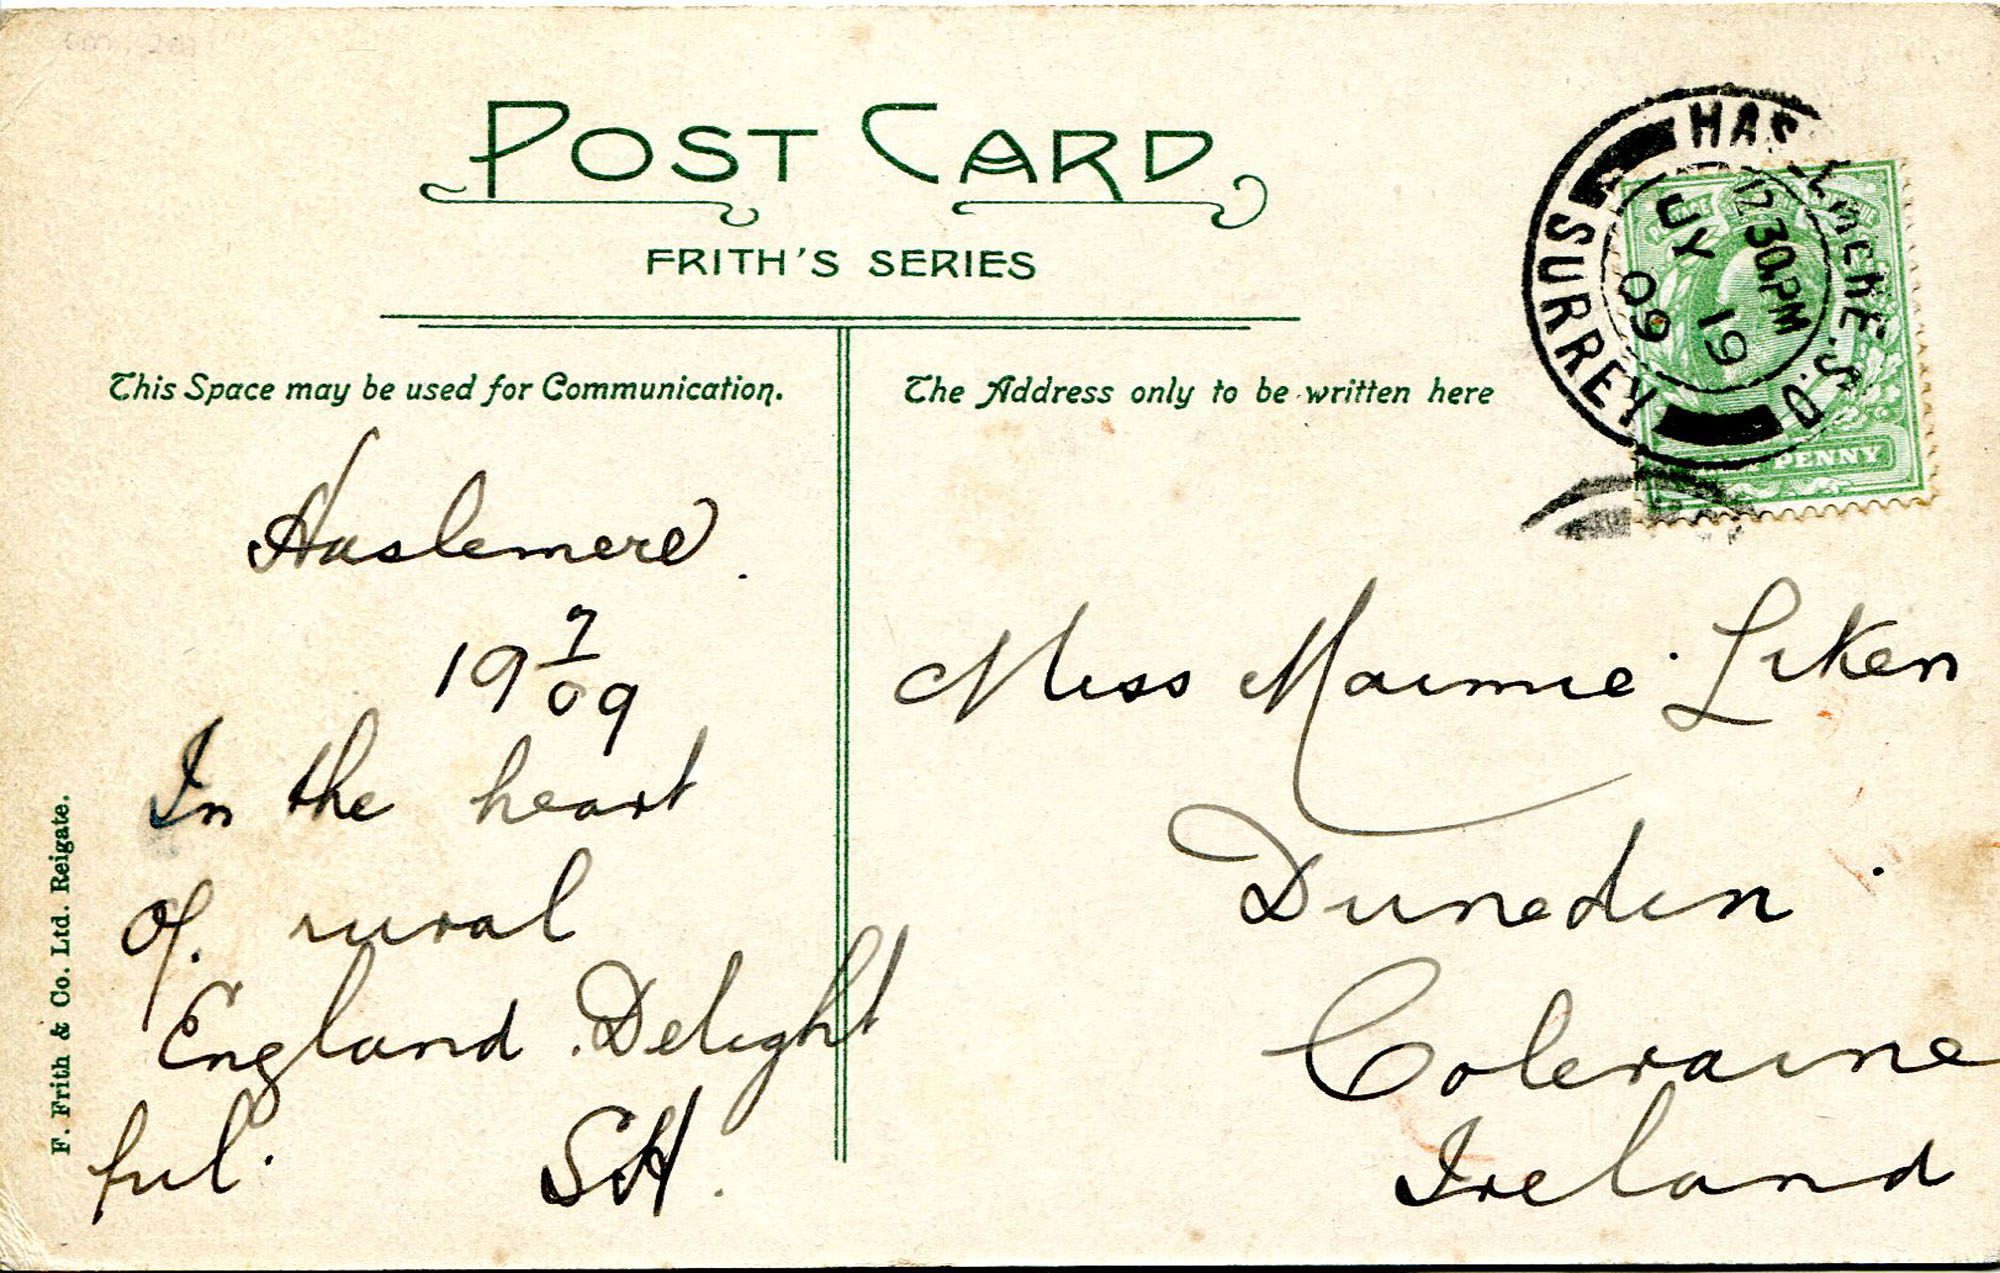 POST CARD
FRITH'S SERIES
This Space may be used for Communication.
The Address only to be written here
HASLEMERE S.O.
SURREY
12.30 PM
JY 19
09
PENNY
Haslemere.
19 7/09
In the heart
of. rural
England. Delight
ful.
SH.
Miss Maimie Liken
Dunedin
Coleraine
Ireland
F. Frith & Co. Ltd. Reigate.